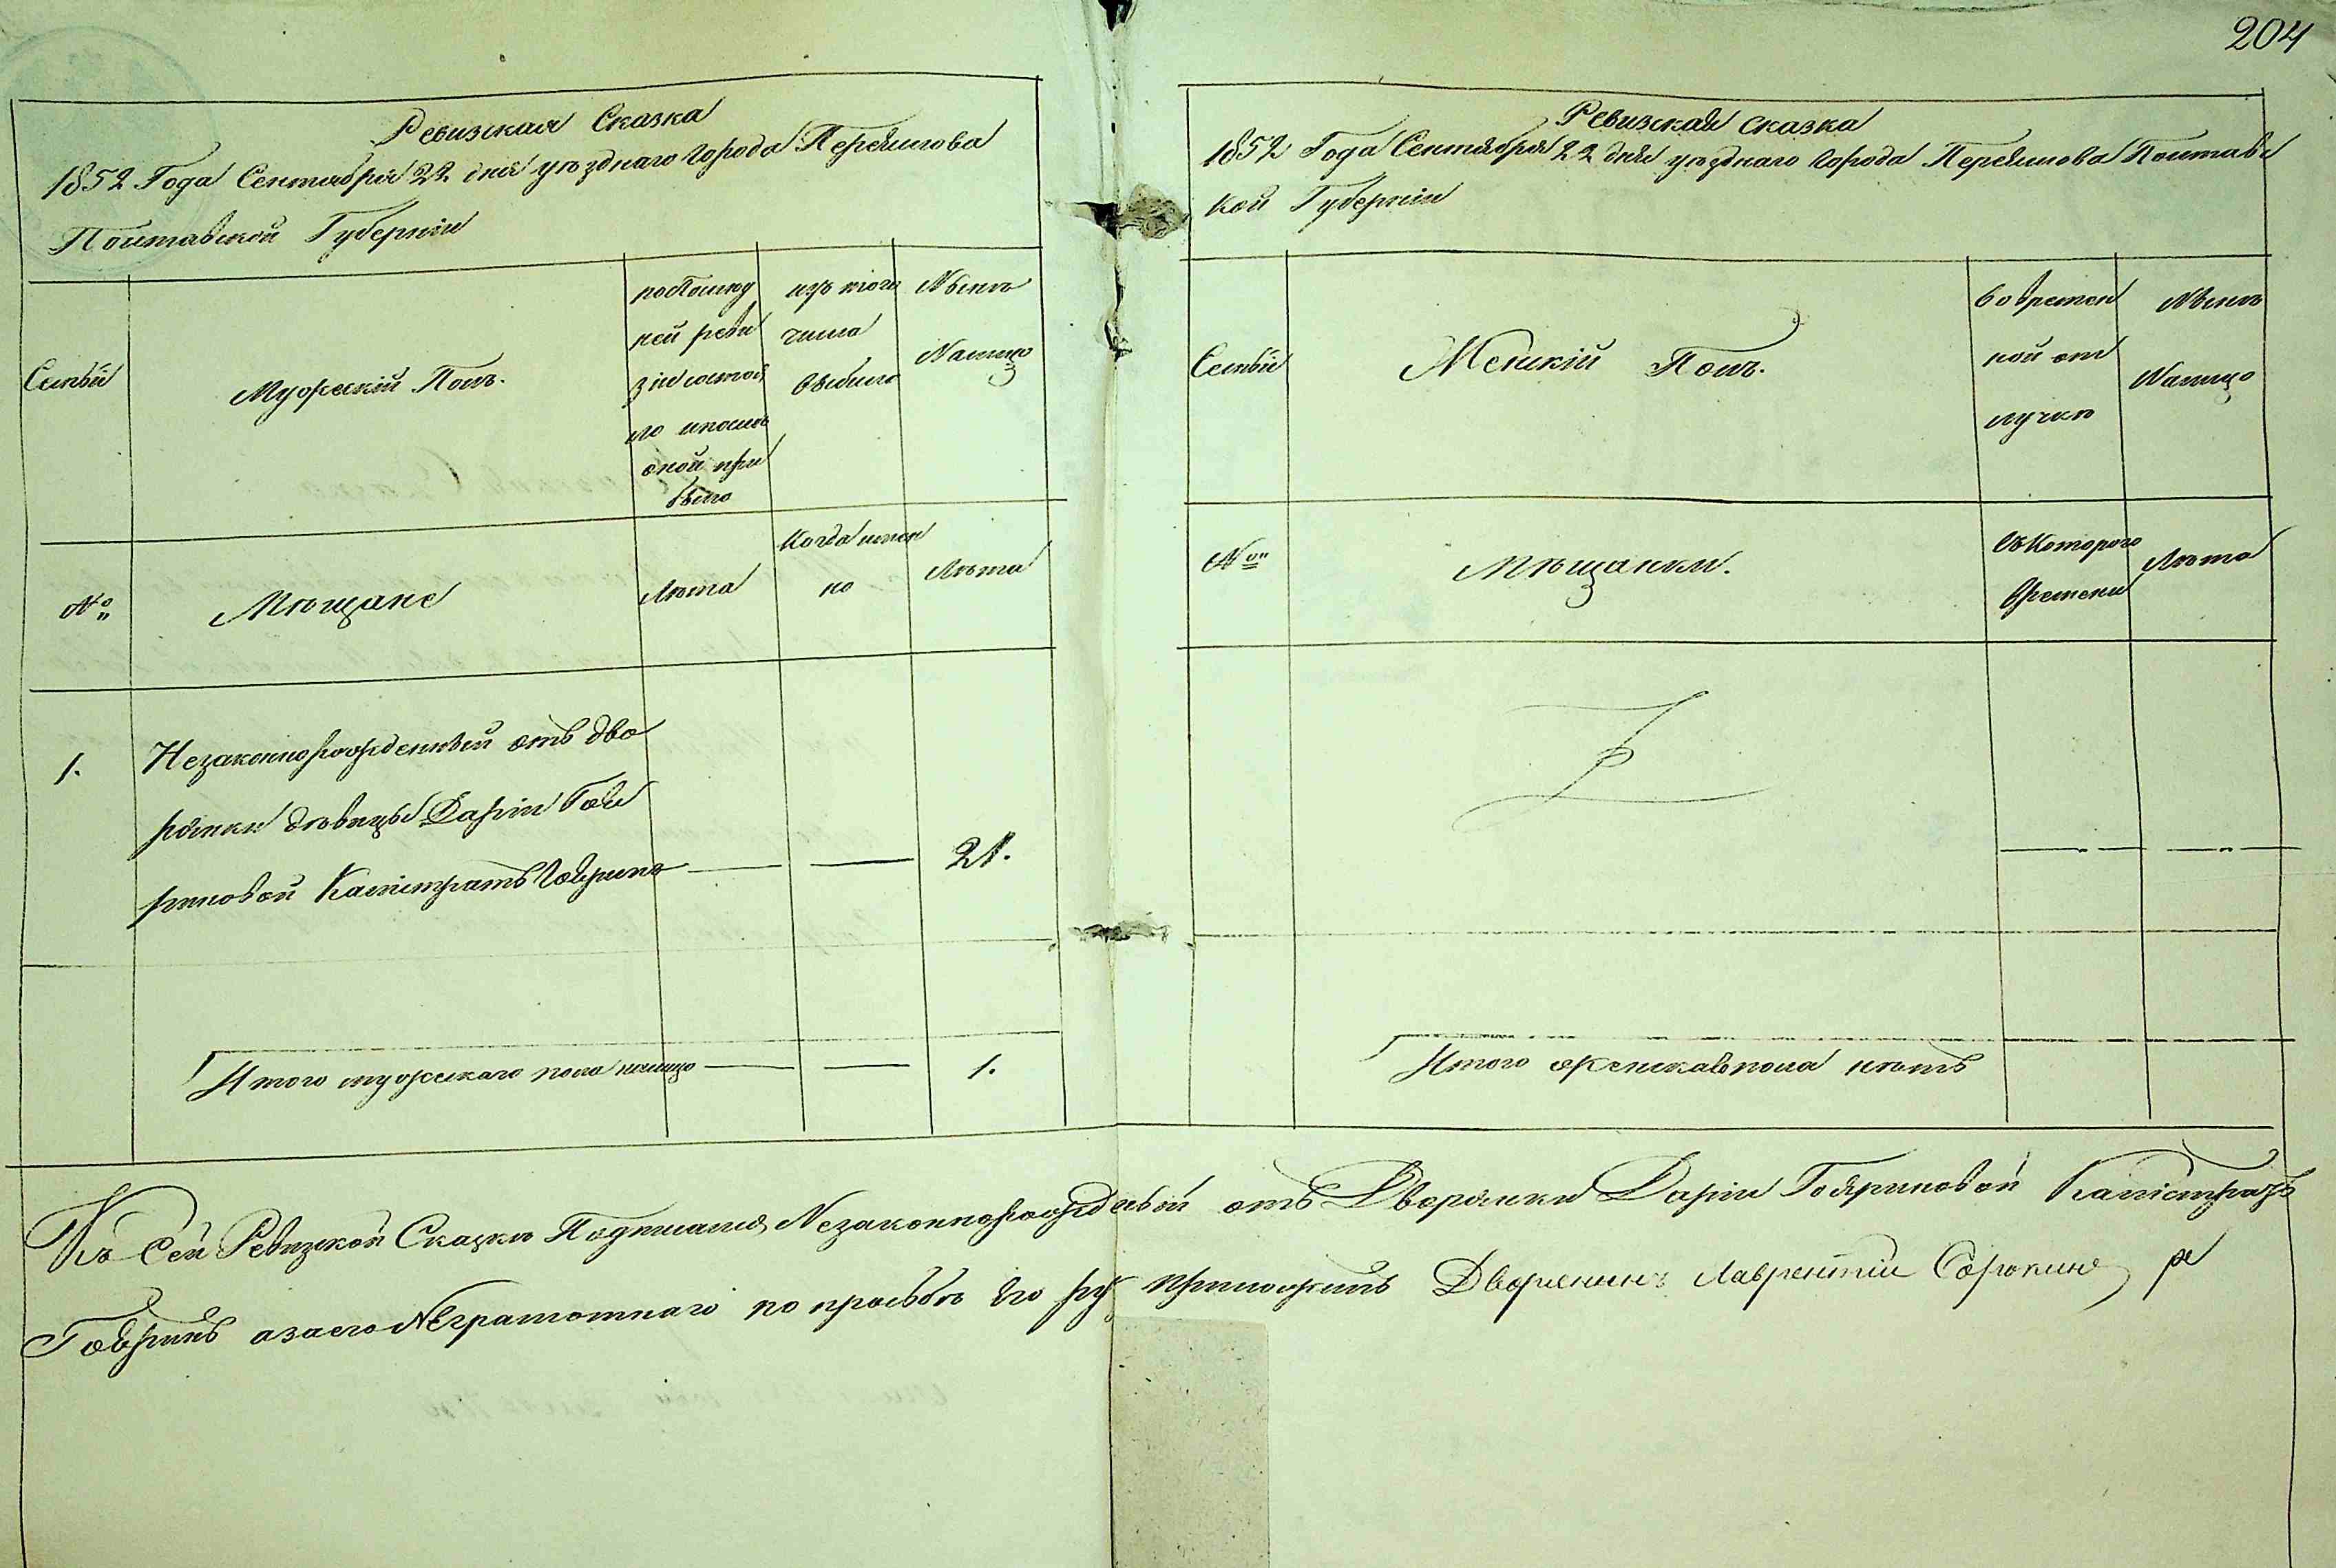 204
Ревизская Сказка
1852 Года Сентября 22 дня уезднаго Города Переяслова
Полтавской Губерніи
Семьи
Мужескій Полъ.
попослѣд
ней реви
зіи состоя
ло и послѣ
оной при
было
изъ того
числа
выбыло
Нынѣ
Налицо
№
Мѣщане
Лѣта
Когда имен
но
Лѣта
1.
Незаконнорожденный отъ дво
рянки дѣвицы Даріи Гав
риновой Калистратъ Гавринъ
21.
Итого мужескаго пола налицо
1.
Ревизская Сказка
1852 Года Сентября 22 дня уезднаго Города Переяслова Полтавс
кой Губерніи
Семьи
Женскій Полъ.
Во времен
ной от
лучкѣ
Нынѣ
Налицо
№
Мѣщанки.
Съ Котораго
Времени
Лѣта
Итого женскаго пола нѣтъ
Къ Сей Ревизской Сказкѣ Незаконнорожденый отъ Дворянки Даріи Гавриновой Калистратъ
Гавринъ а за его Неграмотнаго по прозьбѣ Его ру приложилъ Дворянинъ Лаврентій Сорокинъ